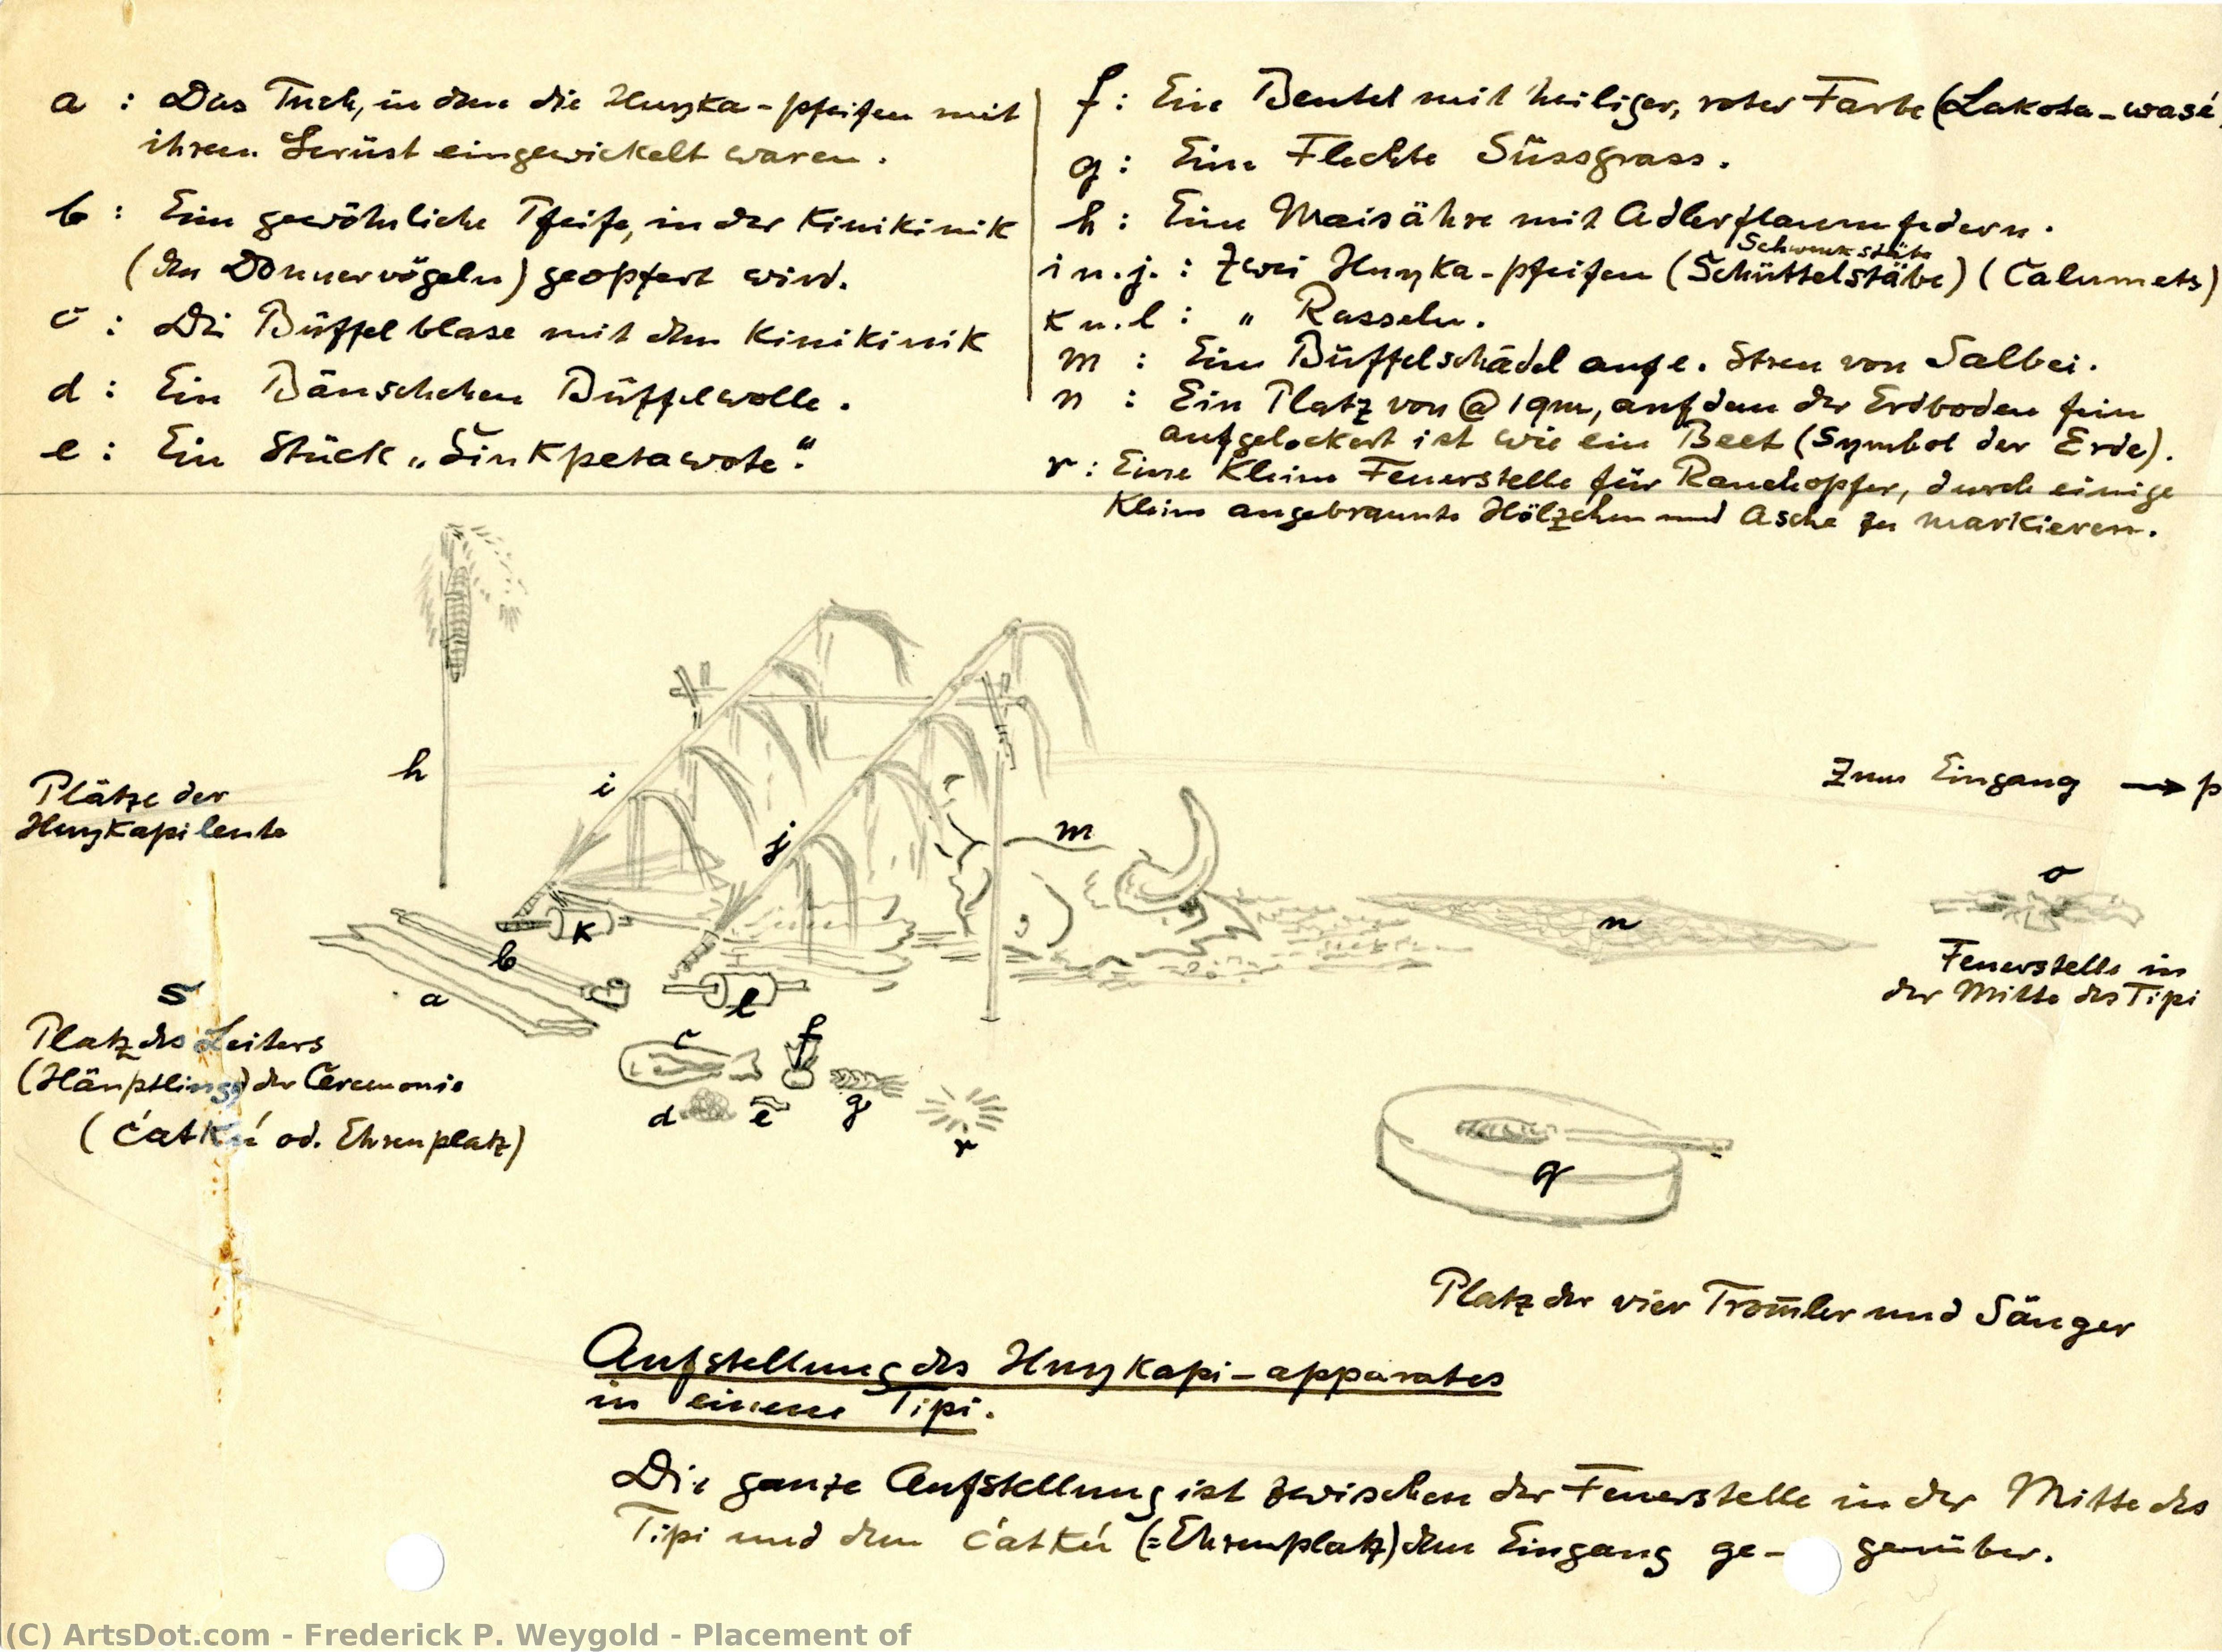 a : Das Tuch, in dem die Huŋka-pfeifen mit
ihrem Gerüst eingewickelt waren.
b : Eine gewöhnliche Pfeife, in der Kinikinik
(den Donnervögeln) geopfert wird.
c : Die Büffelblase mit dem Kinikinik
d : Ein Bäuschchen Büffelwolle.
e : Ein Stück „Sinkpetawote“.
f : Ein Beutel mit heiliger, roter Farbe (Lakota-wasé
g : Eine Flechte Süssgrass.
h : Eine Maisähre mit Adlerflaumfedern.
Schmuckstäbe
i u. j. : Zwei Huŋka-pfeifen (Schüttelstäbe) (Calumets)
k u. l : " Rasseln.
m : Ein Büffelschädel auf e. Streu von Salbei.
n : Ein Platz von @ 1qm, auf dem der Erdboden fein
aufgelockert ist wie ein Beet (Symbol der Erde).
r : Eine kleine Feuerstelle für Rauchopfer, durch einige
kleine angebrannte Hölzchen und Asche zu markieren.
h
i
j
m
Zum Eingang → p
Plätze der
Huŋkapileute
o
n
k
b
a
l
Feuerstelle in
der Mitte des Tipi
s
Platz des Leiters
(Häuptlings) der Ceremonie
(ćatkú od. Ehrenplatz)
c
f
d
e
g
r
q
Platz der vier Trom̄ler und Sänger
Aufstellung des Huŋkapi-apparates
in einem Tipi.
Die ganze Aufstellung ist zwischen der Feuerstelle in der Mitte des
Tipi und dem ćatkú (=Ehrenplatz) dem Eingang ge- genüber.
(C) ArtsDot.com - Frederick P. Weygold - Placement of